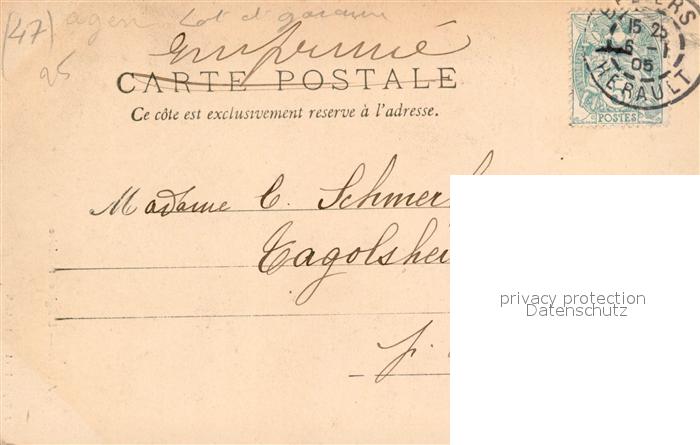 (47) agen Lot et garonne
25
imprimé
CARTE POSTALE
Ce côté est exclusivement reserve à l'adresse.
15 25
6 - 1
05
HERAULT
POSTES
Madame C. Schmer
Tagolshei
privacy protection
Datenschutz